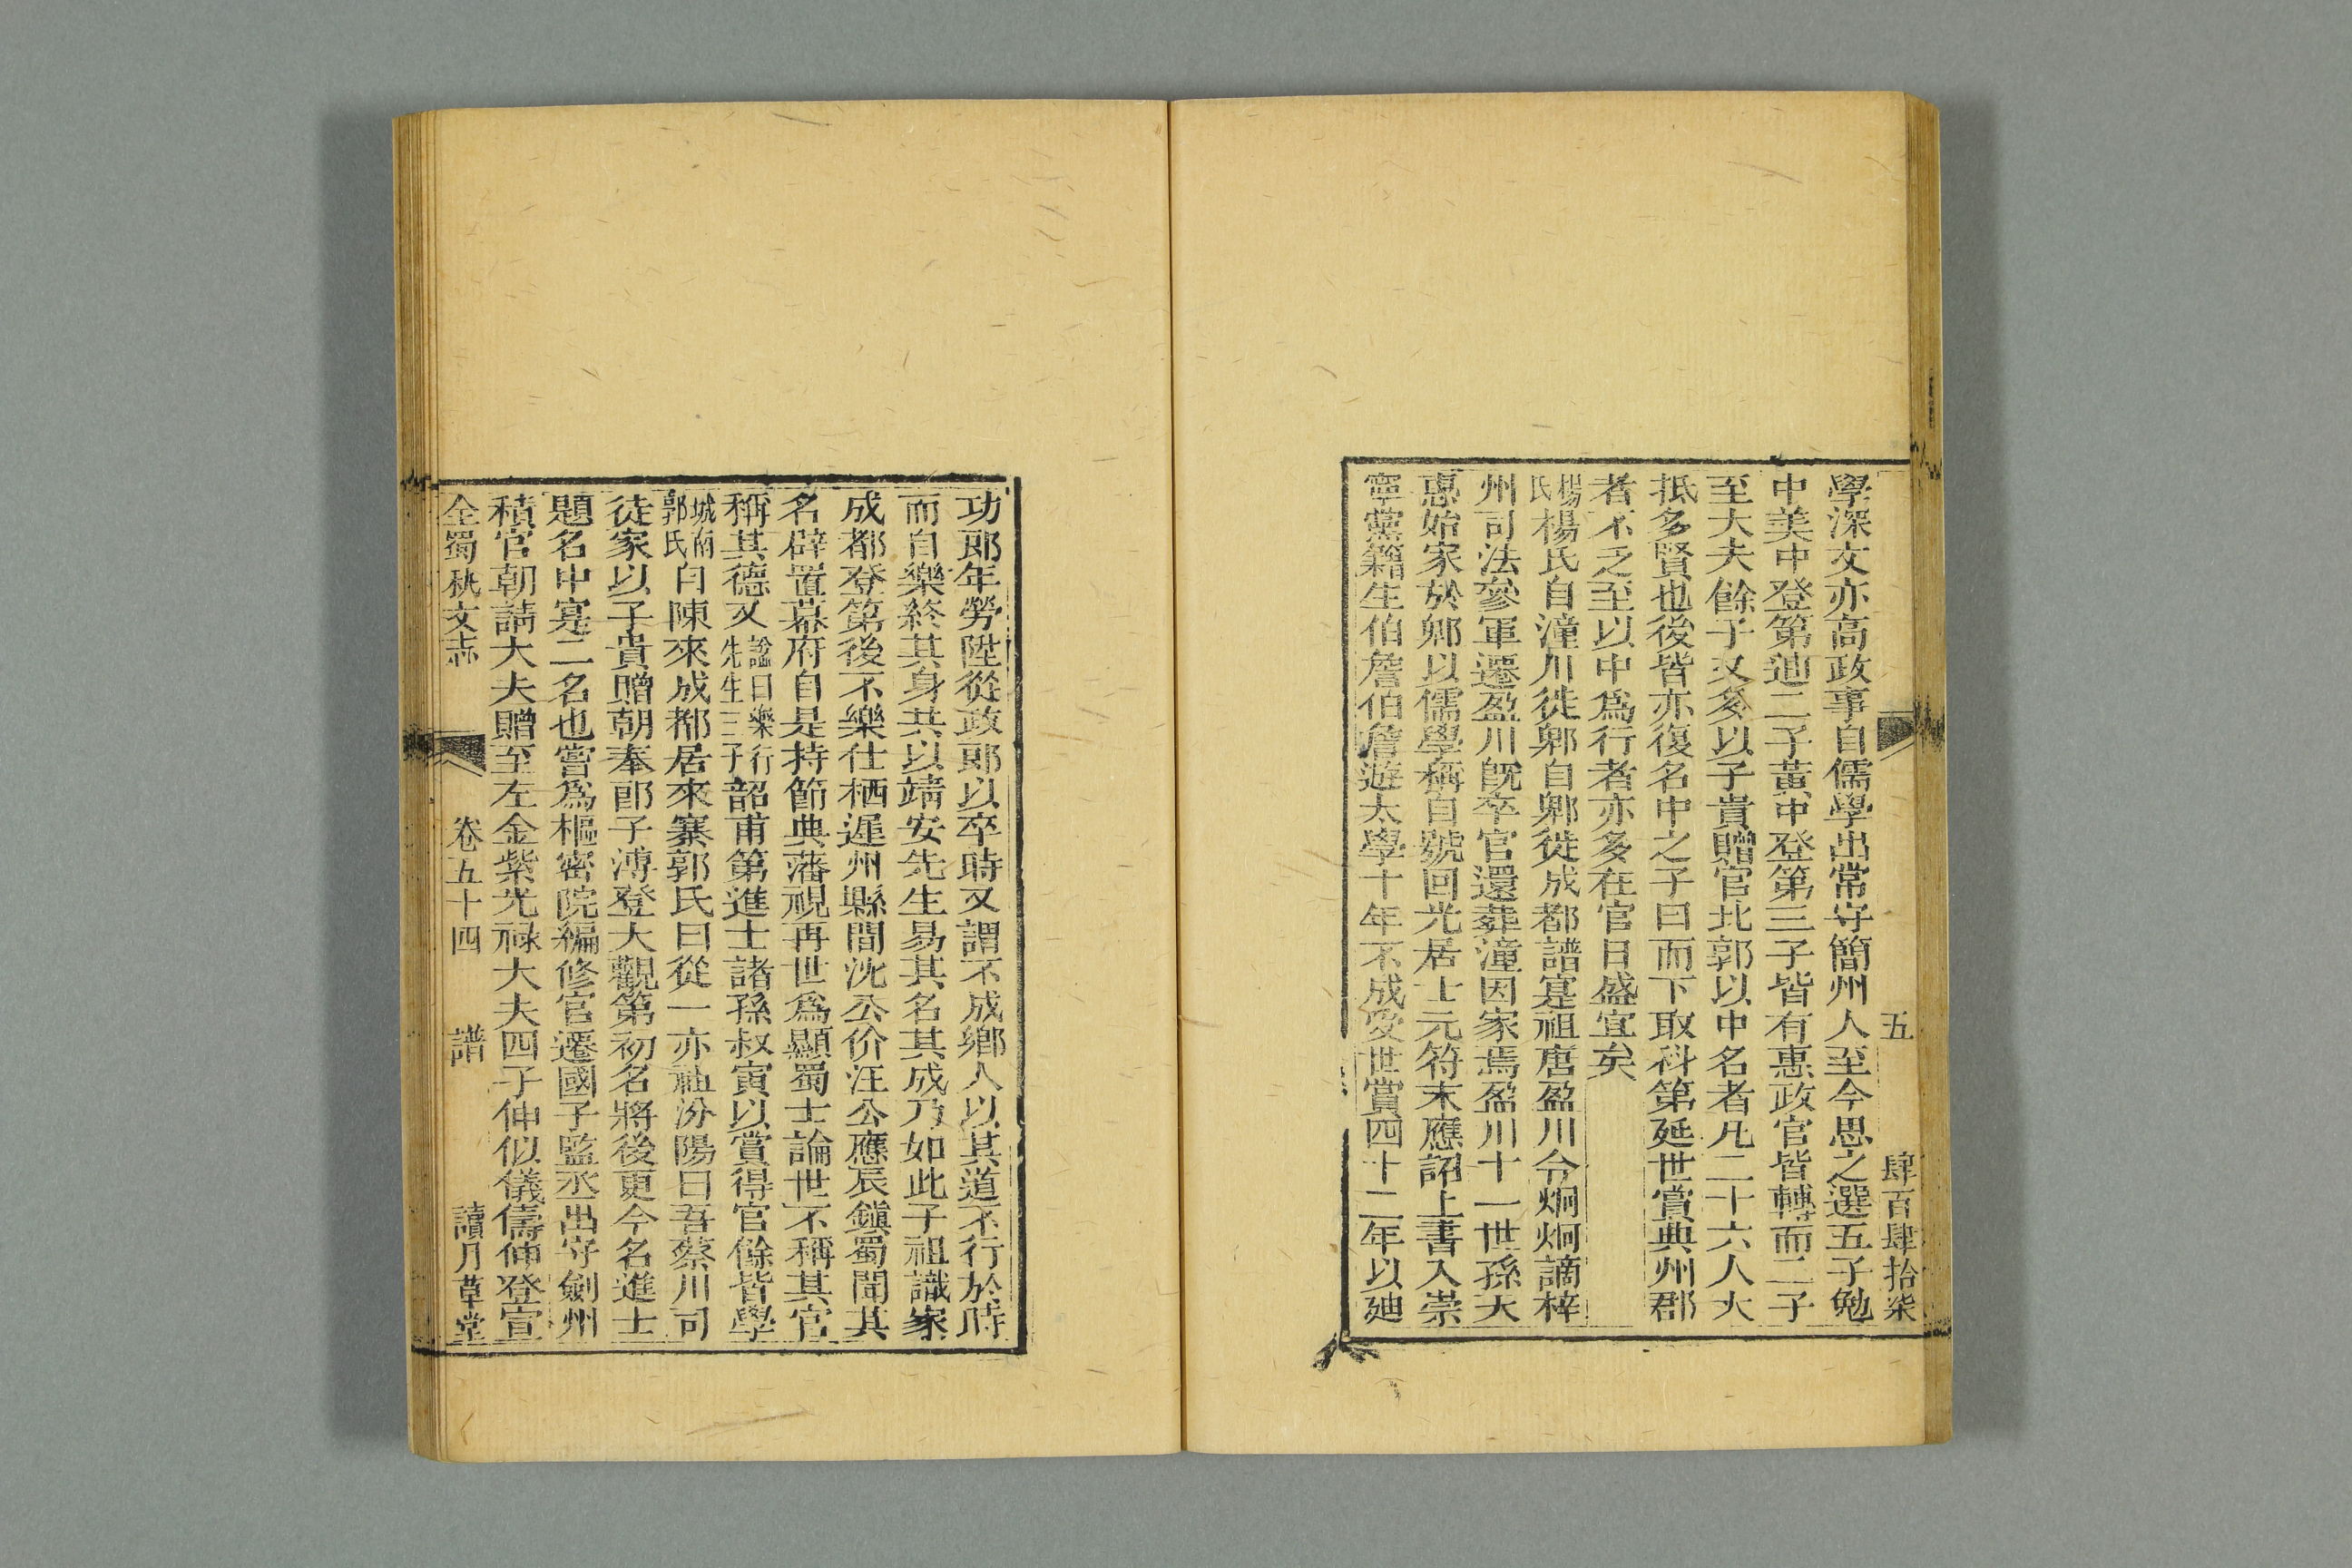 五　肆百肆拾柒
學深文亦高政事自儒學出常守簡州人至今思之選五子勉
中美中登第迪二子黃中登第三子皆有惠政官皆轉而二子
至大夫餘子又多以子貴贈官北郭以中名者凡二十六人大
抵多賢也後皆亦復名中之子曰而下取科第延世賞典州郡
者不乏至以中爲行者亦多在官日盛宜矣
楊氏楊氏自潼川徙郫自郫徙成都譜寔祖唐盈川令炯炯謫梓
州司法參軍遷盈川旣卒官還葬潼因家焉盈川十一世孫大
惠始家於郫以儒學稱自號回光居士元符末應詔上書入崇
寧黨籍生伯詹伯詹遊太學十年不成受世賞四十二年以廸
功郎年勞陞從政郎以卒時又謂不成鄉人以其道不行於時
而自樂終其身共以靖安先生易其名其成乃如此子祖識家
成都登第後不樂仕栖遲州縣間沈公介汪公應辰鎮蜀聞其
名辟置幕府自是持節典藩視再世爲顯蜀士論世不稱其官
稱其德又諡曰樂行先生三子韶甫第進士諸孫叔寅以賞得官餘皆學
城南郭氏自陳來成都居來寨郭氏曰從一亦祉汾陽曰吾蔡川司
徒家以子貴贈朝奉郎子溥登大觀第初名將後更今名進士
題名中寔二名也嘗爲樞密院編修官遷國子監丞出守劍州
積官朝請大夫贈至左金紫光祿大夫四子伸似儀儔伸登宣
全蜀秇文志　卷五十四　譜　讀月草堂